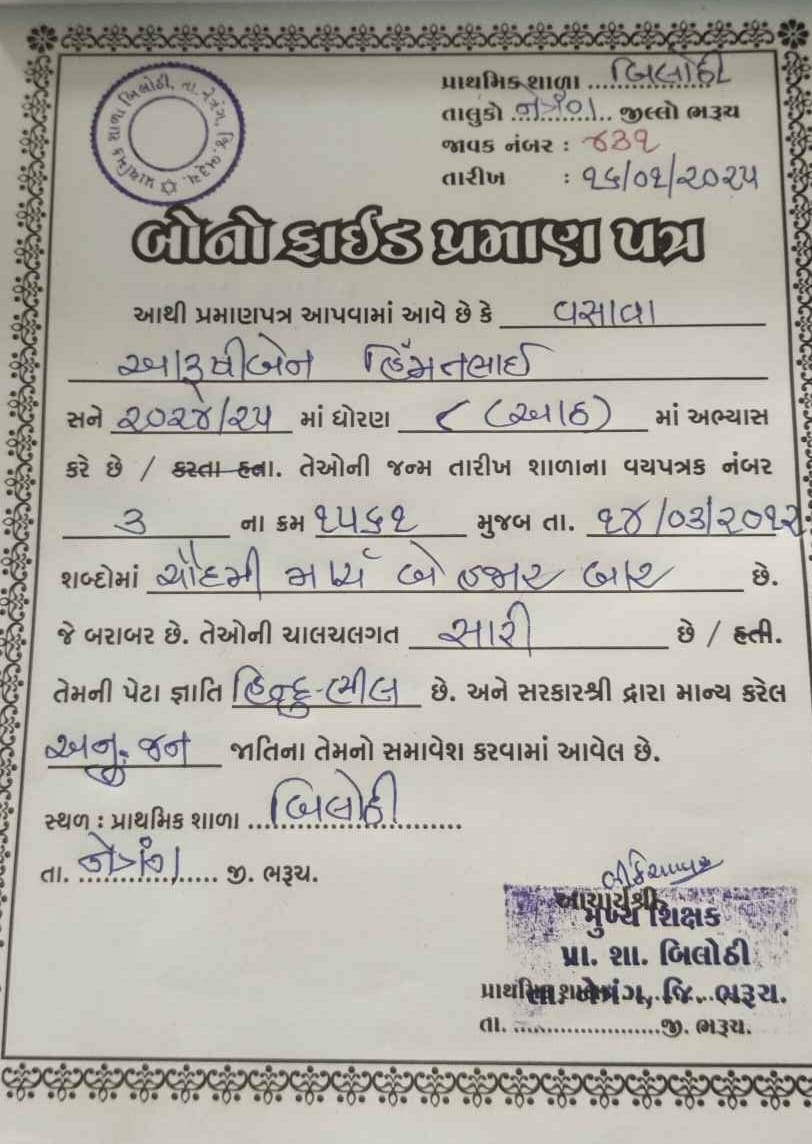 પ્રાથમિક શાળા બિલોઠી, તા. નેત્રંગ, જિ. ભરૂચ.
પ્રાથમિક શાળા બિલોઠી
તાલુકો નેત્રંગ જીલ્લો ભરૂચ
જાવક નંબર : ૪૩૧
તારીખ : ૧૬/૦૧/૨૦૨૫
બોનોફાઈડ પ્રમાણ પત્ર
આથી પ્રમાણપત્ર આપવામાં આવે છે કે વસાવા
આરૂષીબેન હિંમતભાઈ
સને ૨૦૨૪/૨૫ માં ધોરણ ૮ (આઠ) માં અભ્યાસ
કરે છે / કરતા હતા. તેઓની જન્મ તારીખ શાળાના વયપત્રક નંબર
૩ ના ક્રમ ૧૫૬૧ મુજબ તા. ૧૪/૦૩/૨૦૧૨
શબ્દોમાં ચૌદમી માર્ચ બે હજાર બાર છે.
જે બરાબર છે. તેઓની ચાલચલગત સારી છે / હતી.
તેમની પેટા જ્ઞાતિ હિન્દુ-ભીલ છે. અને સરકારશ્રી દ્વારા માન્ય કરેલ
અનુ. જન જાતિના તેમનો સમાવેશ કરવામાં આવેલ છે.
સ્થળ : પ્રાથમિક શાળા બિલોઠી
તા. નેત્રંગ જી. ભરૂચ.
આચાર્યશ્રી
મુખ્ય શિક્ષક
પ્રા. શા. બિલોઠી
પ્રાથમિક શાળા
તા. નેત્રંગ, જિ. ભરૂચ.
તા. જી. ભરૂચ.